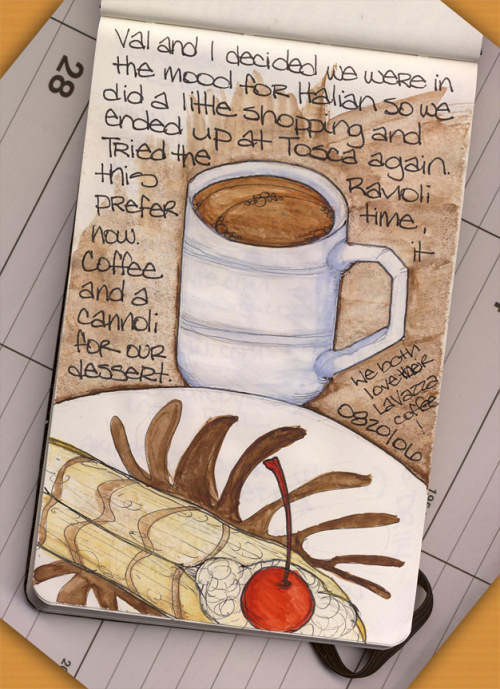 Val and I decided we were in
the mood for Italian so we
did a little shopping and
ended up at Tosca again.
Tried the Ravioli
this time,
prefer it
now.
Coffee
and a
cannoli
for our
dessert.
We both
love their
LaVazza
coffee
0820/06
28